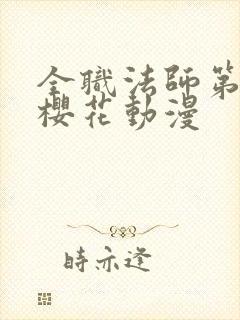 全職法師第
櫻花動漫
時亦逢